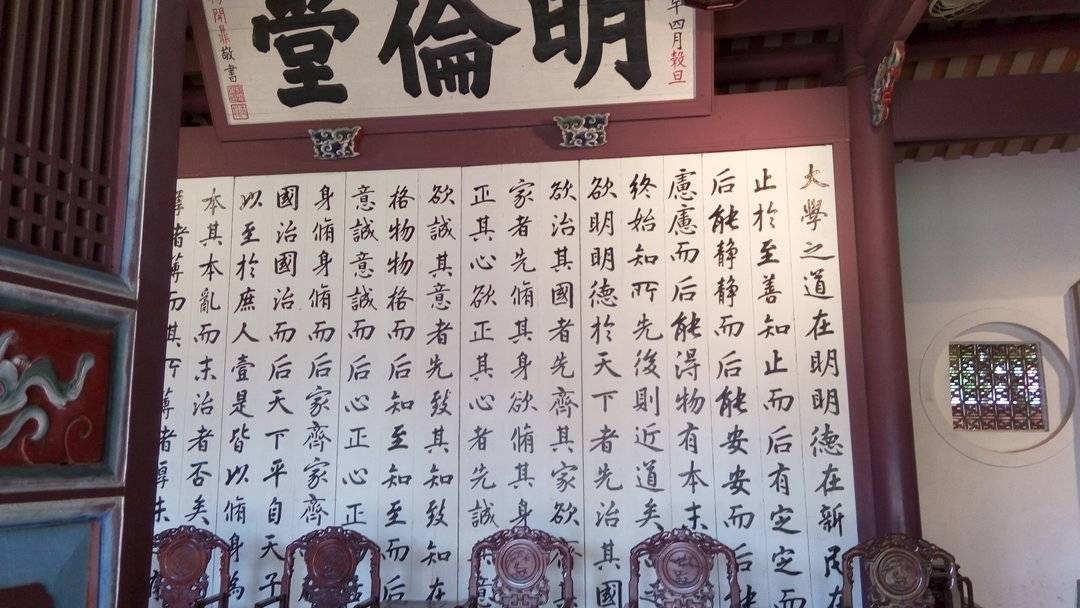 明倫堂
四月穀旦
開鼎敬書
大學之道在明明德在新民在
止於至善知止而后有定定而
后能静静而后能安安而后能
慮慮而后能得物有本末
終始知所先後則近道矣
欲明明德於天下者先治其國
欲治其國者先齊其家欲
家者先脩其身欲脩其身
正其心欲正其心者先誠其意
欲誠其意者先致其知致知在
格物物格而后知至知至而后
意誠意誠而后心正心正
身脩身脩而后家齊家齊
國治國治而后天下平自天子
以至於庶人壹是皆以脩身為
本其本亂而末治者否矣
厚者薄而其所薄者厚未